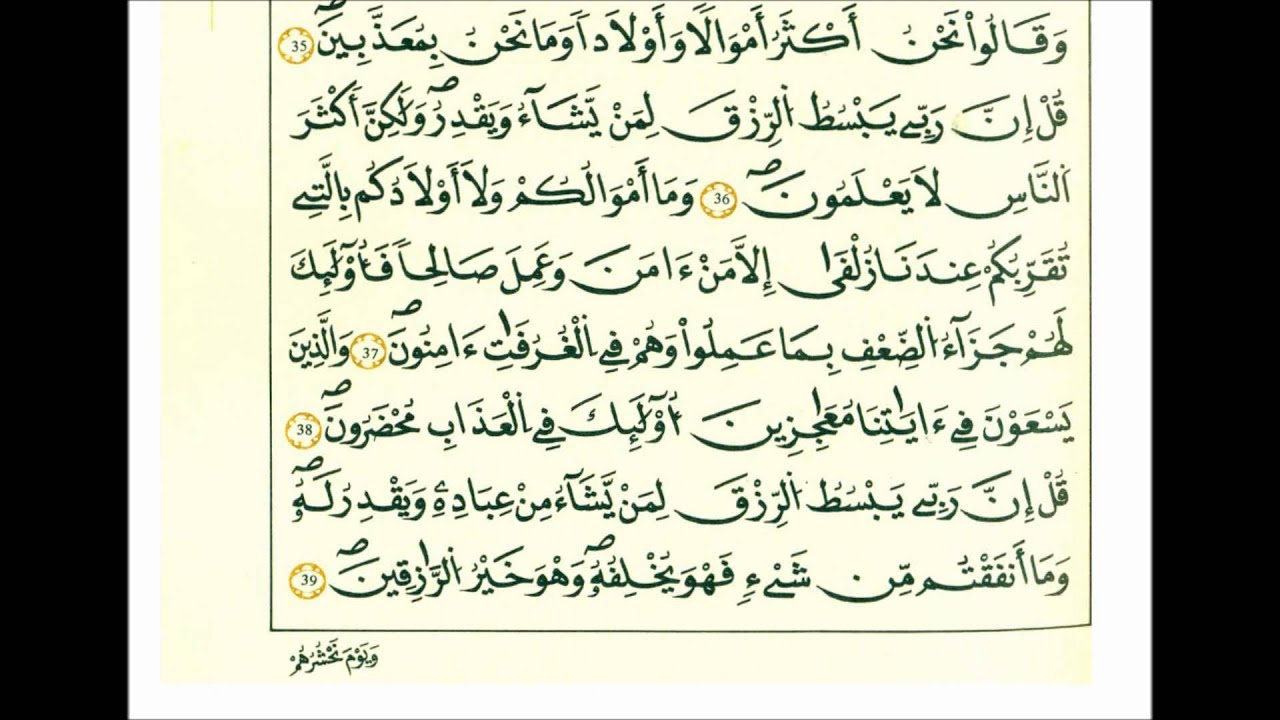 وَقَالُواْ نَحْنُ أَكْثَرُ أَمْوَالاً وَأَوْلَاداً وَمَا نَحْنُ بِمُعَذَّبِينَ 35
قُلْ إِنَّ رَبِّي يَبْسُطُ اُلرِّزْقَ لِمَنْ يَّشَآءُ وَيَقْدِرُ وَلَٰكِنَّ أَكْثَرَ
اَلنَّاسِ لَا يَعْلَمُونَ 36 وَمَا أَمْوَالُكُمْ وَلَا أَوْلَادُكُم بِالَّتِي
تُقَرِّبُكُمْ عِندَنَا زُلْفَىٰ إِلَّا مَنْ ءَامَنَ وَعَمِلَ صَالِحاً فَأُوْلَٰٓئِكَ
لَهُمْ جَزَآءُ اُلضِّعْفِ بِمَا عَمِلُواْ وَهُمْ فِي اِلْغُرُفَٰتِ ءَامِنُونَ 37 وَالَّذِينَ
يَسْعَوْنَ فِي ءَايَٰتِنَا مُعَٰجِزِينَ أُوْلَٰٓئِكَ فِي اِلْعَذَابِ مُحْضَرُونَ 38
قُلْ إِنَّ رَبِّي يَبْسُطُ اُلرِّزْقَ لِمَنْ يَّشَآءُ مِنْ عِبَادِهِۦ وَيَقْدِرُ لَهُۥ
وَمَا أَنفَقْتُم مِّن شَيْءٍ فَهْوَ يُخْلِفُهُۥ وَهْوَ خَيْرُ اُلرَّٰزِقِينَ 39
وَيَوْمَ نَحْشُرُهُمْ